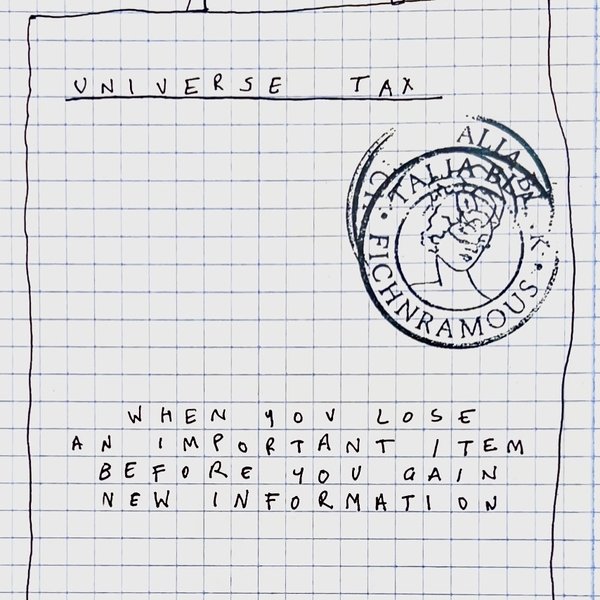 UNIVERSE TAX
TALIA
FICHNRAMOUS
WHEN YOU LOSE
AN IMPORTANT ITEM
BEFORE YOU GAIN
NEW INFORMATION